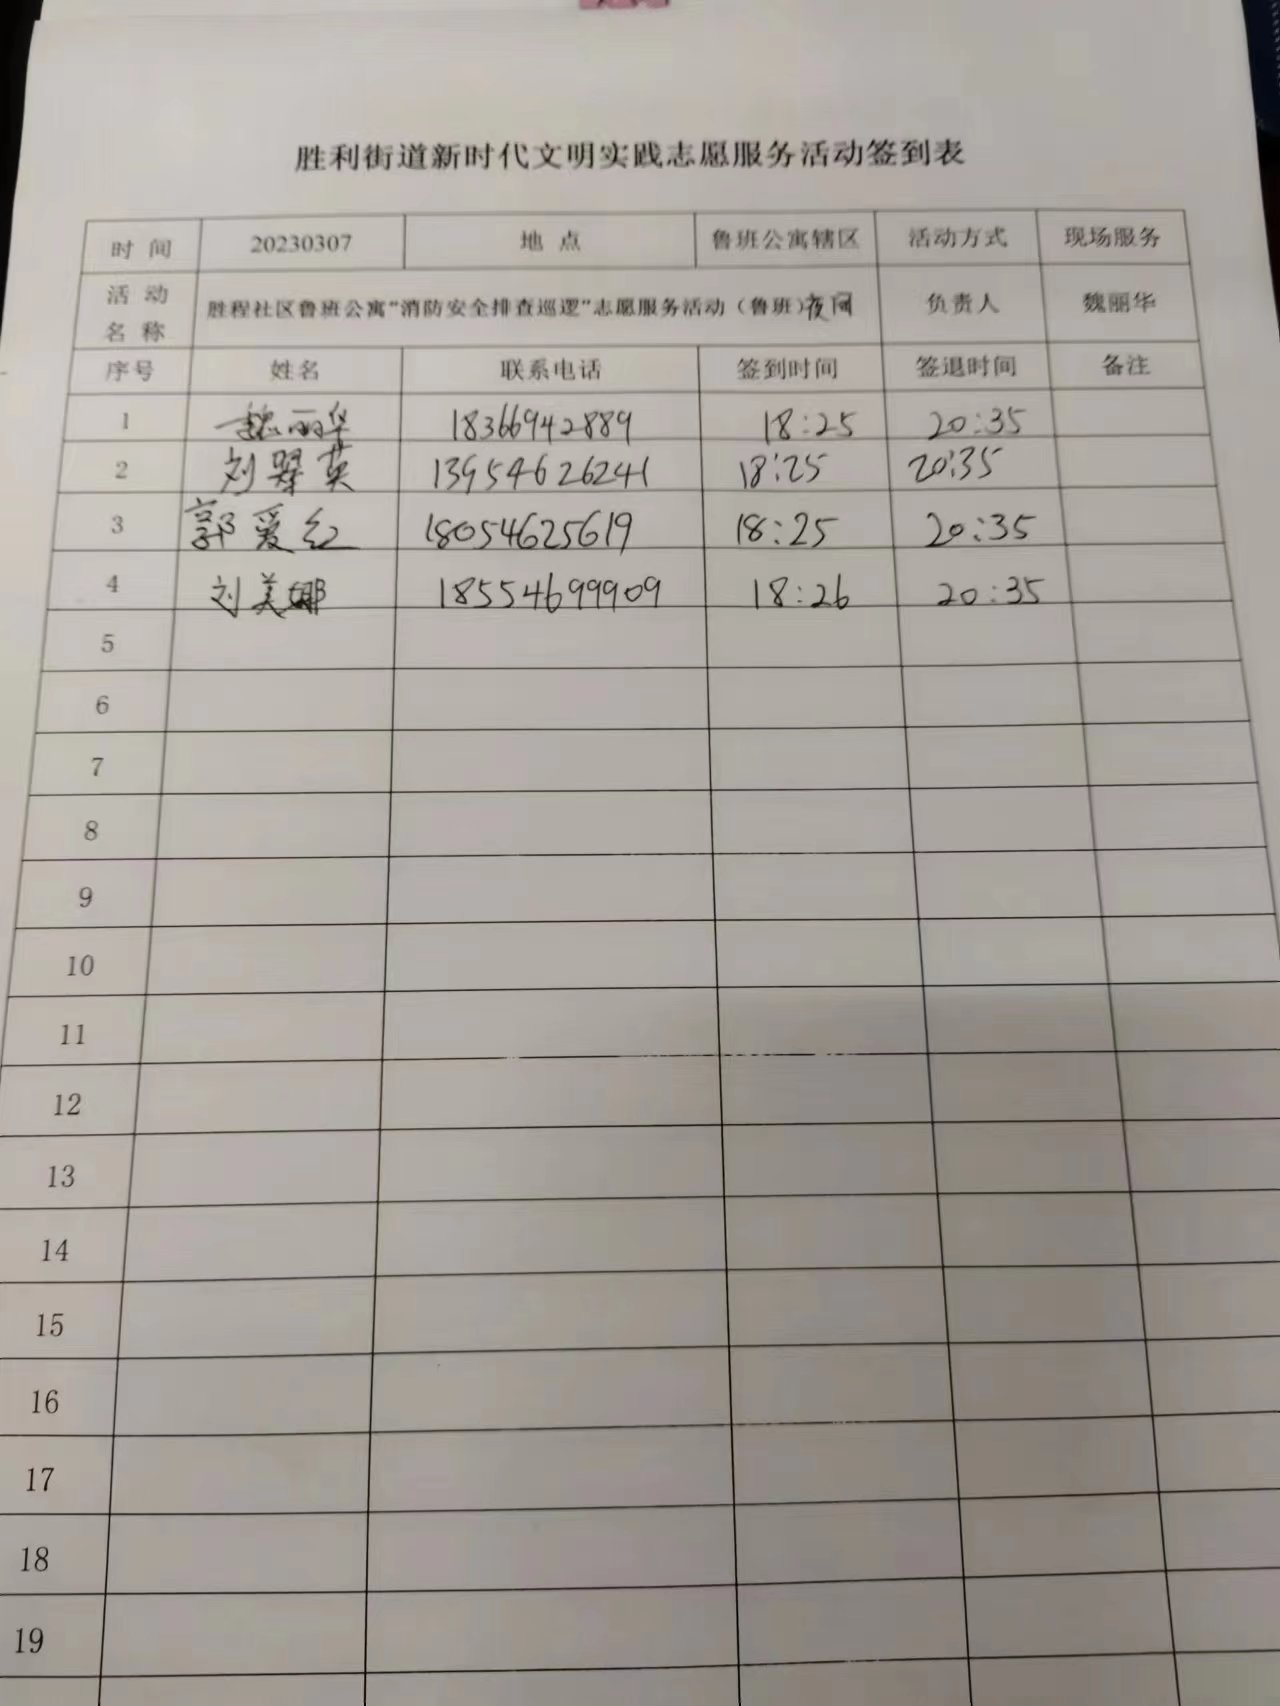 胜利街道新时代文明实践志愿服务活动签到表
时 间 20230307 地 点 鲁班公寓辖区 活动方式 现场服务
活 动 名 称 胜程社区鲁班公寓“消防安全排查巡逻”志愿服务活动（鲁班）夜间 负责人 魏丽华
序号 姓名 联系电话 签到时间 签退时间 备注
1 魏丽华 18366942889 18:25 20:35
2 刘 英 13954626241 18:25 20:35
3 郭爱红 18054625619 18:25 20:35
4 刘美娜 18554699909 18:26 20:35
5
6
7
8
9
10
11
12
13
14
15
16
17
18
19